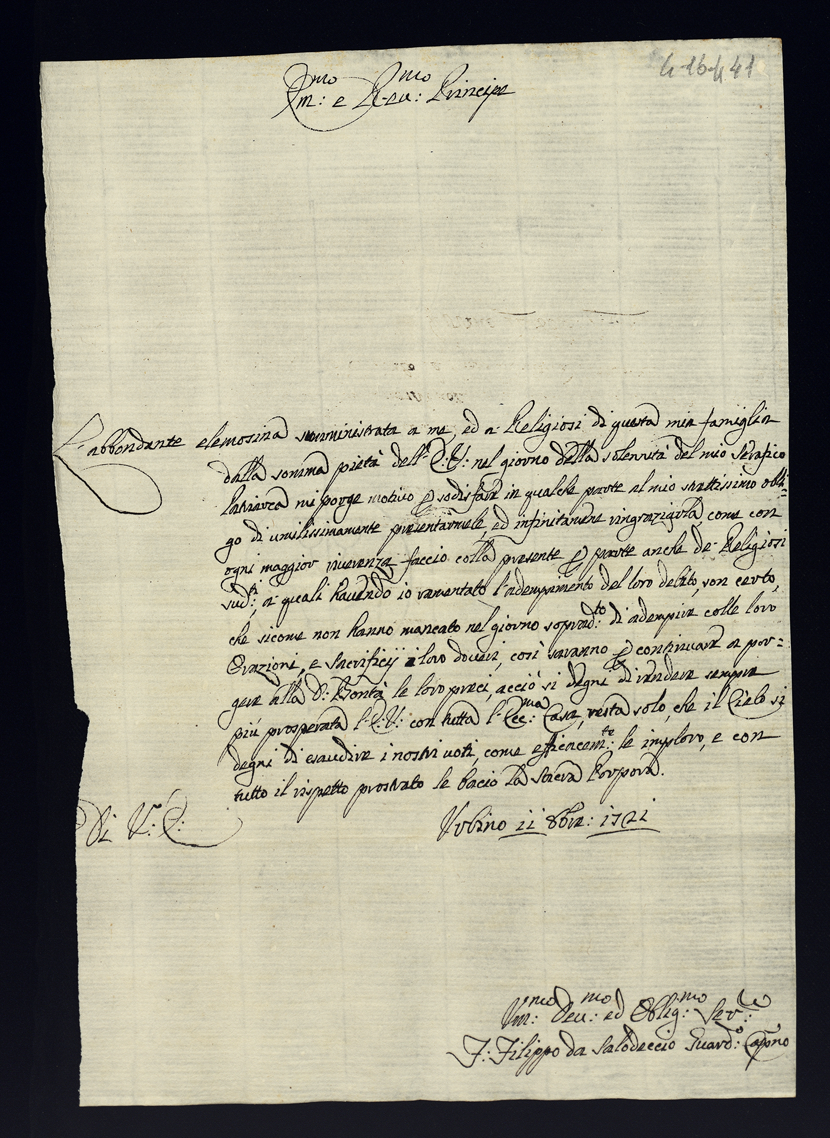 4-16-4 41
Em:mo e Reu:mo Principe
L'abbondante elemosina somministrata a me, ed a Religiosi di questa mia famiglia
dalla somma pietà dell'E:V: nel giorno della solennità del mio Serafico
Patriarca mi porge motivo per sodisfare in qualche parte al mio strettissimo obli=
go di umilissimamente presentarmele, ed infinitamente ringraziarla come con
ogni maggior riverenza faccio colla presente per parte anche de Religiosi
sud:ti, a quali havendo io ramentato l'adempimento del loro debito, son certo,
che sicome non hanno mancato nel giorno soprad:to di adempire colle loro
Orazioni, e Sacrificij i loro doveri, così saranno per continuare a por=
gere alla D: Bontà le loro preci, acciò si degni di rendere sempre
più prosperata l'E:V: con tutta l'Ecc:ma Casa, resta solo, che il Cielo si
degni di esaudire i nostri uoti, come efficacem:te le imploro, e con
tutto il rispetto prostrato le bacio la Sacra Porpora.
Di V: E:
Urbino 11 8bre: 1721
Um:mo Deu:mo ed Oblig:mo Ser:re
F: Filippo da Salodeccio Guard:o Capno